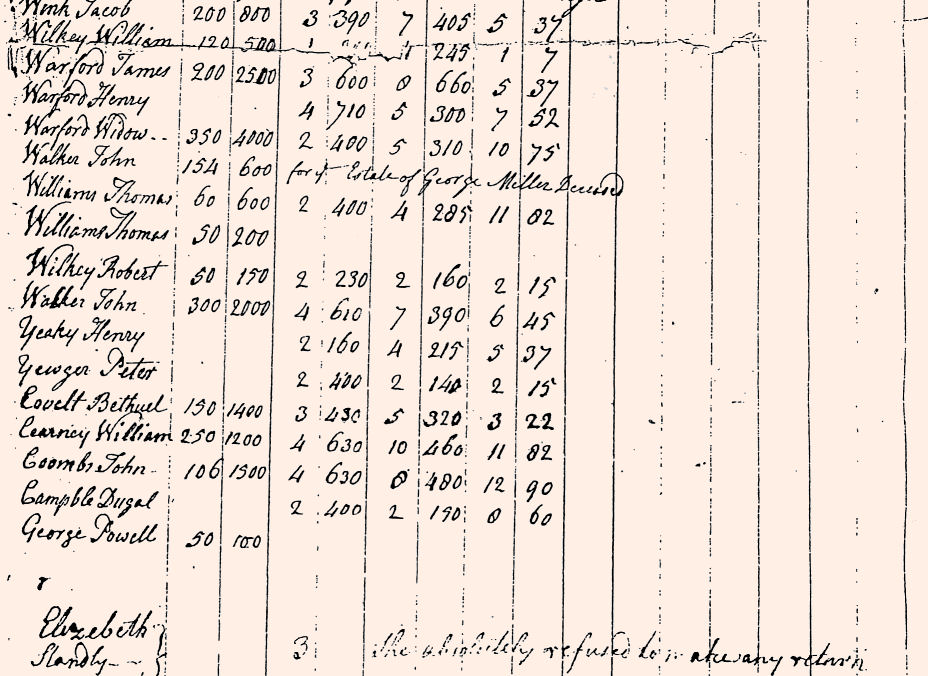 Wink Jacob 200 800 3 390 7 405 5 37
Wilkey William 120 500 1 1 245 1 7
Warford James 200 2500 3 600 8 660 5 37
Warford Henry 4 710 5 300 7 52
Warford Widow -- 350 4000 2 400 5 310 10 75
Walker John 154 600 for ye Estate of George Miller Deceased
Williams Thomas 60 600 2 400 4 285 11 82
Williams Thomas 50 200
Wilkey Robert 50 150 2 230 2 160 2 15
Walker John 300 2000 4 610 7 390 6 45
Yeaky Henry 2 160 4 215 5 37
Yewger Peter 2 400 2 140 2 15
Covelt Bethuel 150 1400 3 430 5 320 3 22
Cearney William 250 1200 4 630 10 460 11 82
Coombs John - 106 1500 4 630 8 480 12 90
Campble Dugal 2 400 2 190 8 60
George Powell 50 100
Elizebeth
Standly -- 3 She absolutely refused to make any return